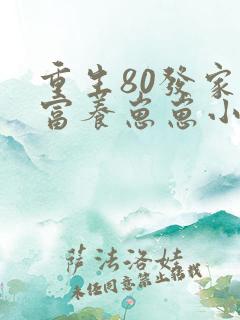 重生80發家
富養崽崽小
萨法洛娃
未经同意禁止转载